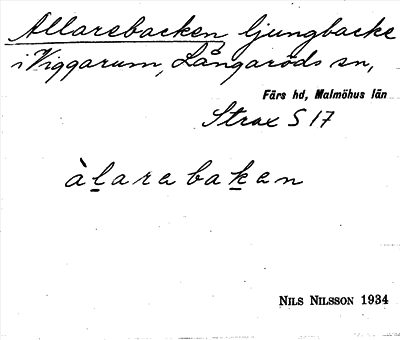 Allarebacken ljungbacke
i Viggarum, Långaröds sn,
Färs hd, Malmöhus län
Strax S 17
àlarebaken
NILS NILSSON 1934